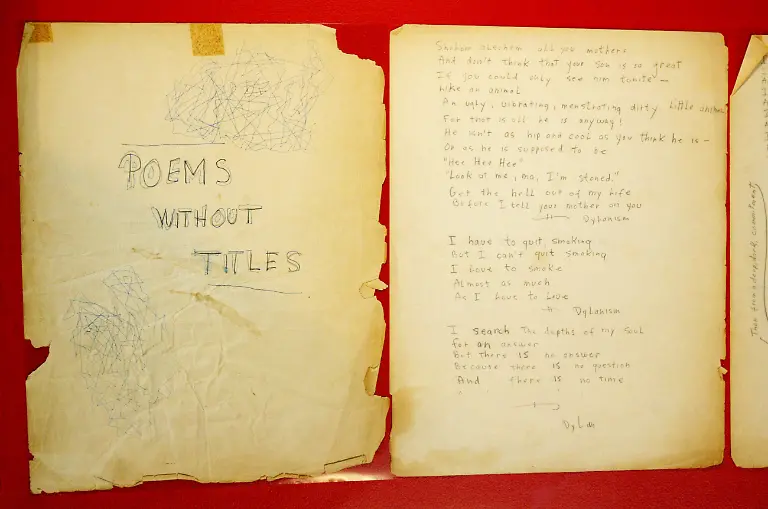 POEMS
WITHOUT
TITLES
Sholom alechem all you mothers
And don't think that your son is so great
If you could only see him tonite —
Like an animal
An ugly, vibrating, menstrating dirty little
For that is all he is anyway!
He isn't as hip and cool as you think he is —
Or as he is supposed to be
"Hee Hee Hee"
"Look at me, ma, I'm stoned."
Get the hell out of my life
Before I tell your mother on you
Dylanism
I have to quit smoking
But I can't quit smoking
I love to smoke
Almost as much
As I have to love
Dylanism
I search the depths of my soul
For an answer
But there IS no answer
Because there IS no question
And there IS no time
Dylan